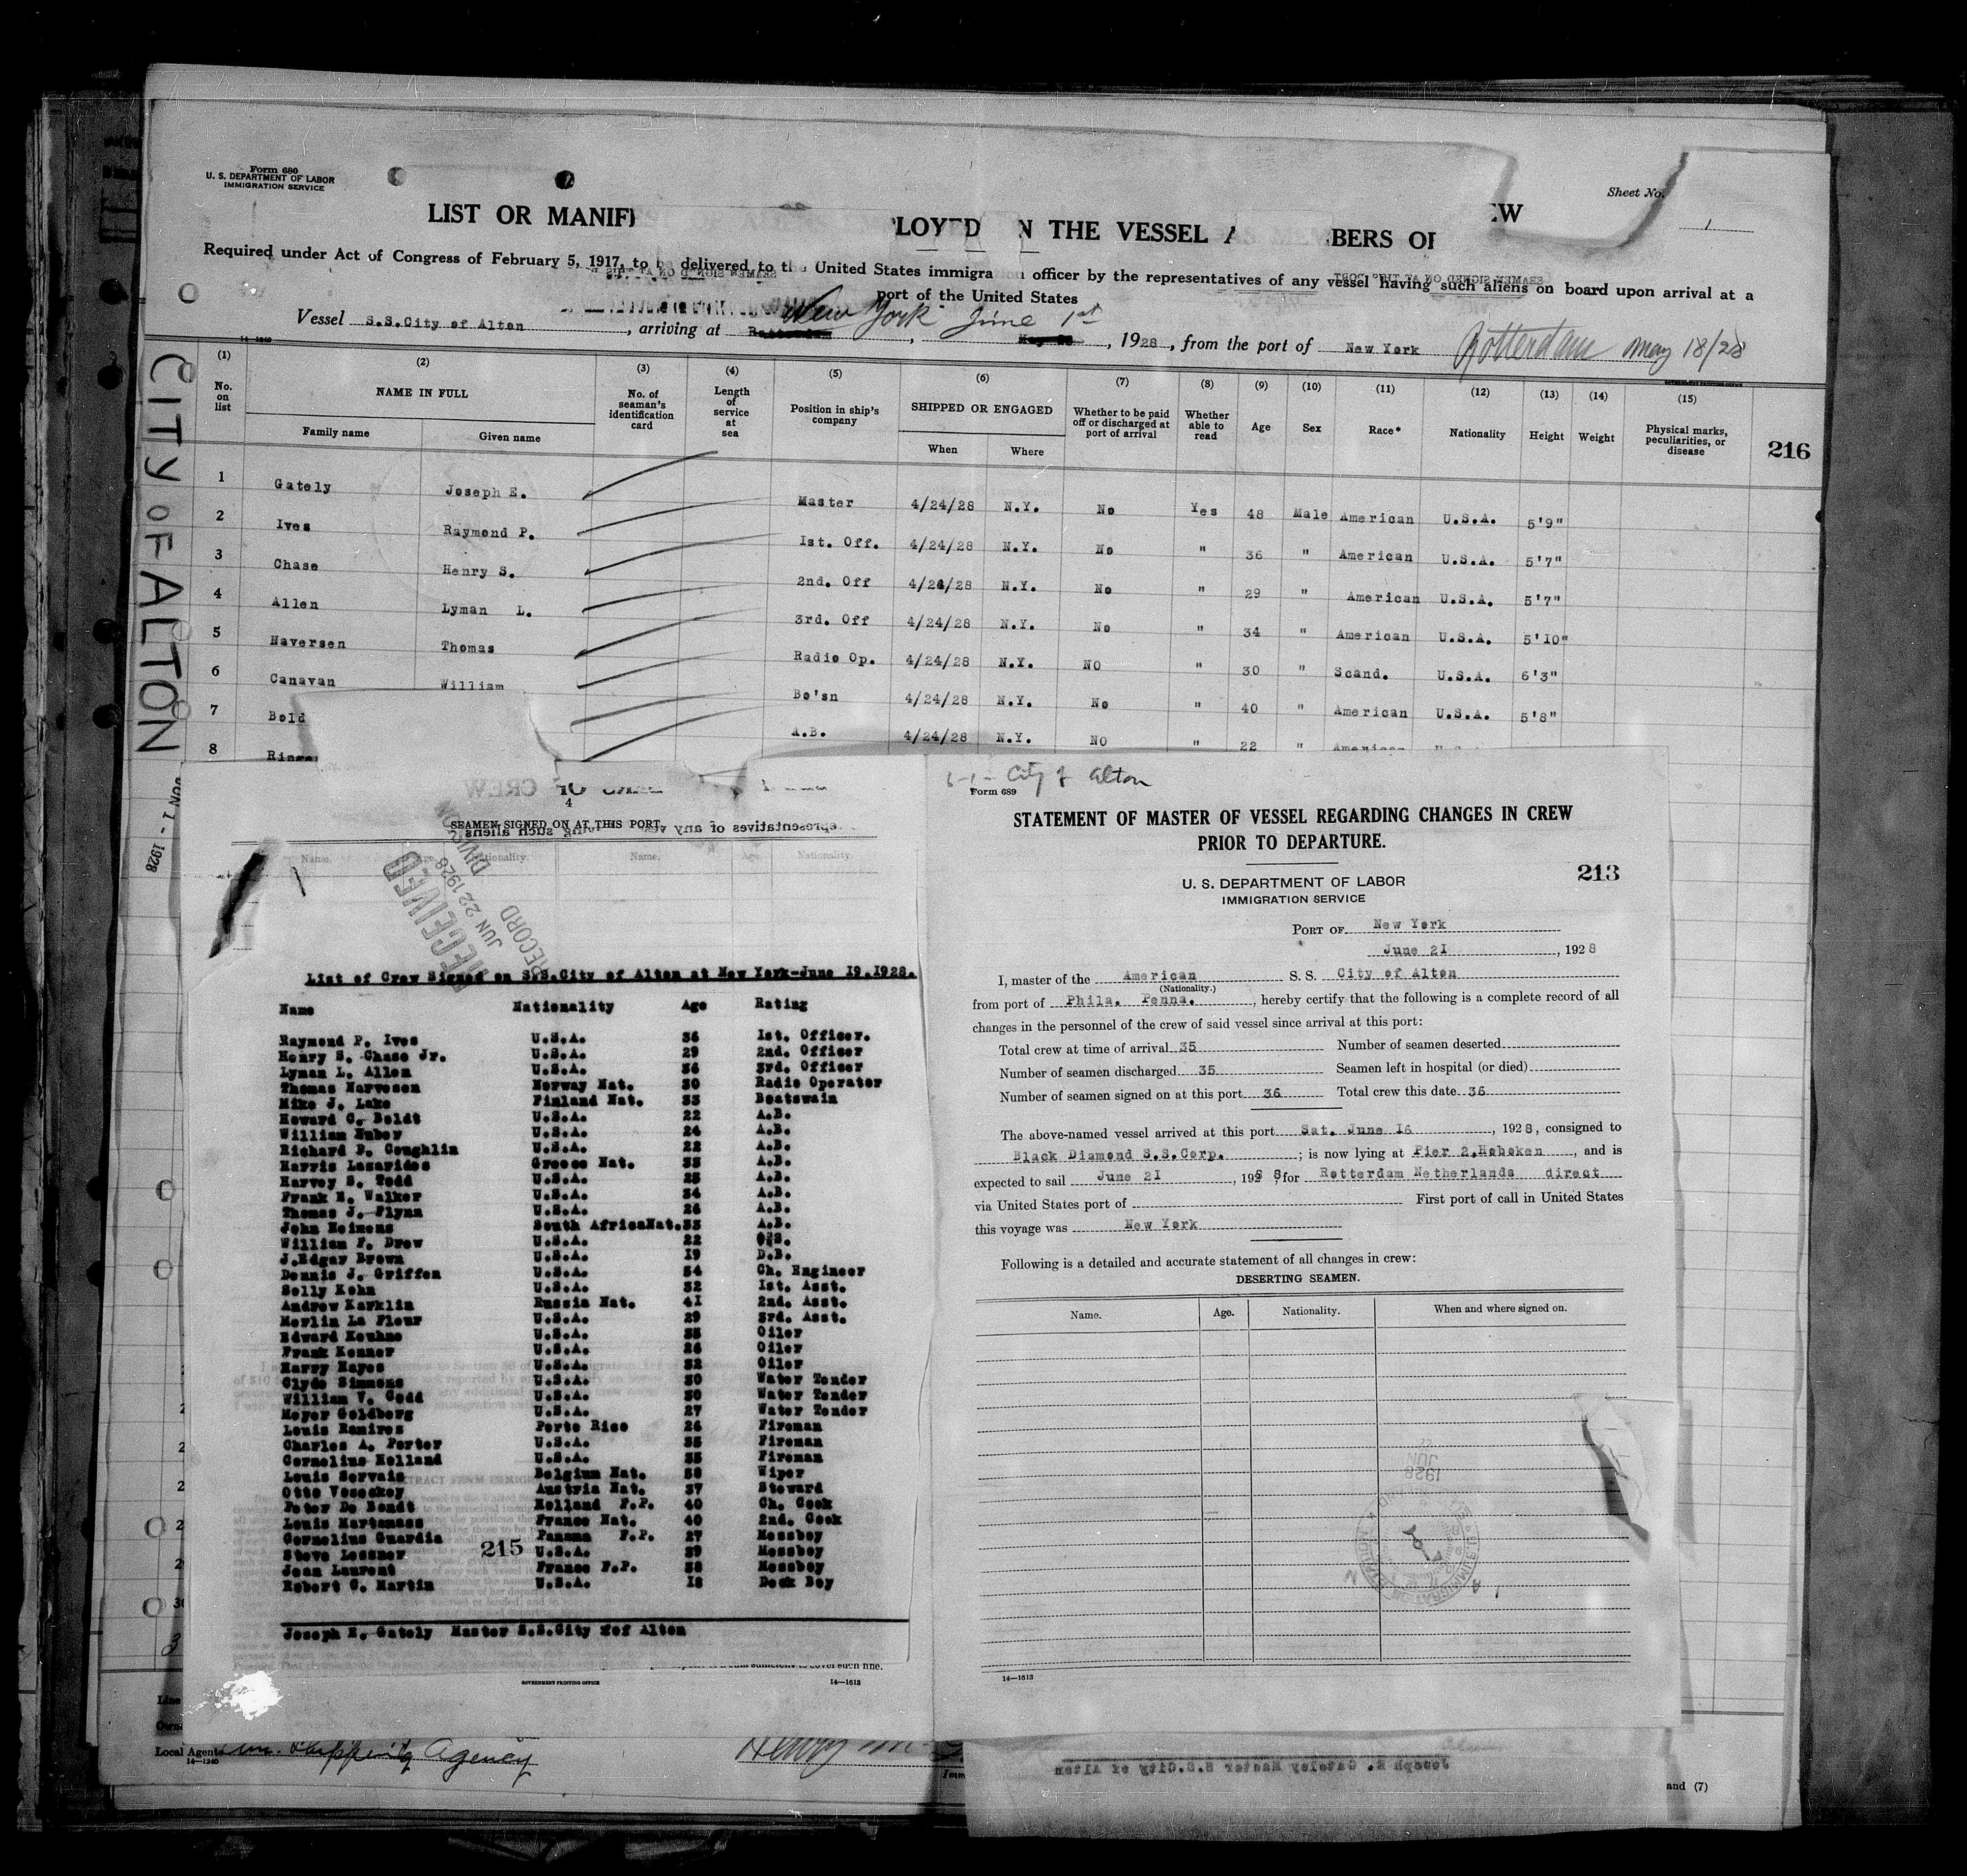 Form 680
U. S. DEPARTMENT OF LABOR
IMMIGRATION SERVICE
Sheet No.
1
LIST OR MANIF LOYED N THE VESSEL A BERS OF EW
Required under Act of Congress of February 5, 1917, to be delivered to the United States immigra officer by the representatives of any vessel having such aliens on board upon arrival at a
port of the United States
Vessel S.S.City of Alton, arriving at Rotterdam New York June 1st, 1928, from the port of New York Rotterdam May 18/28
14-1240
(1) (2) (3) (4) (5) (6) (7) (8) (9) (10) (11) (12) (13) (14) (15)
No. on list NAME IN FULL No. of seaman's identification card Length of service at sea Position in ship's company SHIPPED OR ENGAGED Whether to be paid off or discharged at port of arrival Whether able to read Age Sex Race* Nationality Height Weight Physical marks, peculiarities, or disease
Family name Given name When Where
216
1 Gately Joseph E. Master 4/24/28 N.Y. No Yes 48 Male American U.S.A. 5'9"
2 Ives Raymond P. 1st. Off. 4/24/28 N.Y. No " 36 " American U.S.A. 5'7"
3 Chase Henry S. 2nd. Off 4/24/28 N.Y. No " 29 " American U.S.A. 5'7"
4 Allen Lyman L. 3rd. Off 4/24/28 N.Y. No " 34 " American U.S.A. 5'10"
5 Haversen Thomas Radio Op. 4/24/28 N.Y. NO " 30 " Scand. U.S.A. 6'3"
6 Canavan William Bo'sn 4/24/28 N.Y. No " 40 " American U.S.A. 5'8"
7 Bold A.B. 4/24/28 N.Y. NO " 22 " American
8
CITY OF ALTON
JUN 1 - 1928
4
SEAMEN SIGNED ON AT THIS PORT.
Name. Age. Nationality. Name. Age. Nationality.
RECEIVED
JUN 22 1928
RECORD
DIVISION
List of Crew Signed on S.S.City of Alton at New York-June 19.1928.
Name Nationality Age Rating
Raymond P. Ives U.S.A. 36 1st. Officer.
Henry S. Chase Jr. U.S.A. 29 2nd. Officer
Lyman L. Allen U.S.A. 36 3rd. Officer
Thomas Narvesen Norway Nat. 30 Radio Operator
Mike J. Lake Finland Nat. 33 Boatswain
Howard C. Boldt U.S.A. 22 A.B.
William Huboy U.S.A. 24 A.B.
Richard P. Coughlin U.S.A. 22 A.B.
Harris Lazarides Greece Nat. 33 A.B.
Harvey S. Todd U.S.A. 25 A.B.
Frank H. Walker U.S.A. 34 A.B.
Thomas J. Flynn U.S.A. 26 A.B.
John Heimens South AfricaNat.33 A.B.
William F. Drew U.S.A. 22
J.Edgar Brown U.S.A. 19 D.B.
Dennis J. Griffen U.S.A. 54 Ch. Engineer
Solly Kohn U.S.A. 32 1st. Asst.
Andrew Karklin Russia Nat. 41 2nd. Asst.
Merlin La Fleur U.S.A. 29 3rd. Asst.
Edward Keuhne U.S.A. 35 Oiler
Frank Kenner U.S.A. 26 Oiler
Harry Hayes U.S.A. 32 Oiler
Clyde Simmons U.S.A. 30 Water Tender
William V. Codd U.S.A. 30 Water Tender
Meyer Goldberg U.S.A. 27 Water Tender
Louis Ramirez Porto Rico 26 Fireman
Charles A. Porter U.S.A. 35 Fireman
Cornelius Holland U.S.A. 35 Fireman
Louis Servais Belgium Nat. 38 Wiper
Otto Veseckey Austria Nat. 37 Steward
Peter De Bondt Holland F.P. 40 Ch. Cook
Louis Martamass France Nat. 40 2nd. Cook
Cornelius Guardia Panama F.P. 27 Messboy
Steve Lessner U.S.A. 39 Messboy
Jean Laurent France F.P. 38 Messboy
Robert C. Martin U.S.A. 18 Deck Boy
215
Joseph E. Gately Master S.S.City of Alton
GOVERNMENT PRINTING OFFICE
14—1613
Line
Local Agents Shipping Agency
14-1240
Henry
6-1- City of Alton
Form 689
STATEMENT OF MASTER OF VESSEL REGARDING CHANGES IN CREW
PRIOR TO DEPARTURE.
213
U. S. DEPARTMENT OF LABOR
IMMIGRATION SERVICE
PORT OF New York
June 21, 1928
I, master of the American S. S. City of Alton
(Nationality.)
from port of Phila. Penna., hereby certify that the following is a complete record of all
changes in the personnel of the crew of said vessel since arrival at this port:
Total crew at time of arrival 35 Number of seamen deserted
Number of seamen discharged 35 Seamen left in hospital (or died)
Number of seamen signed on at this port 36 Total crew this date 36
The above-named vessel arrived at this port Sat. June 16, 1928, consigned to
Black Diamond S.S.Corp.; is now lying at Pier 2,Hoboken, and is
expected to sail June 21, 1928 for Rotterdam Netherlands direct
via United States port of First port of call in United States
this voyage was New York
Following is a detailed and accurate statement of all changes in crew:
DESERTING SEAMEN.
Name. Age. Nationality. When and where signed on.
14—1613
and (7)